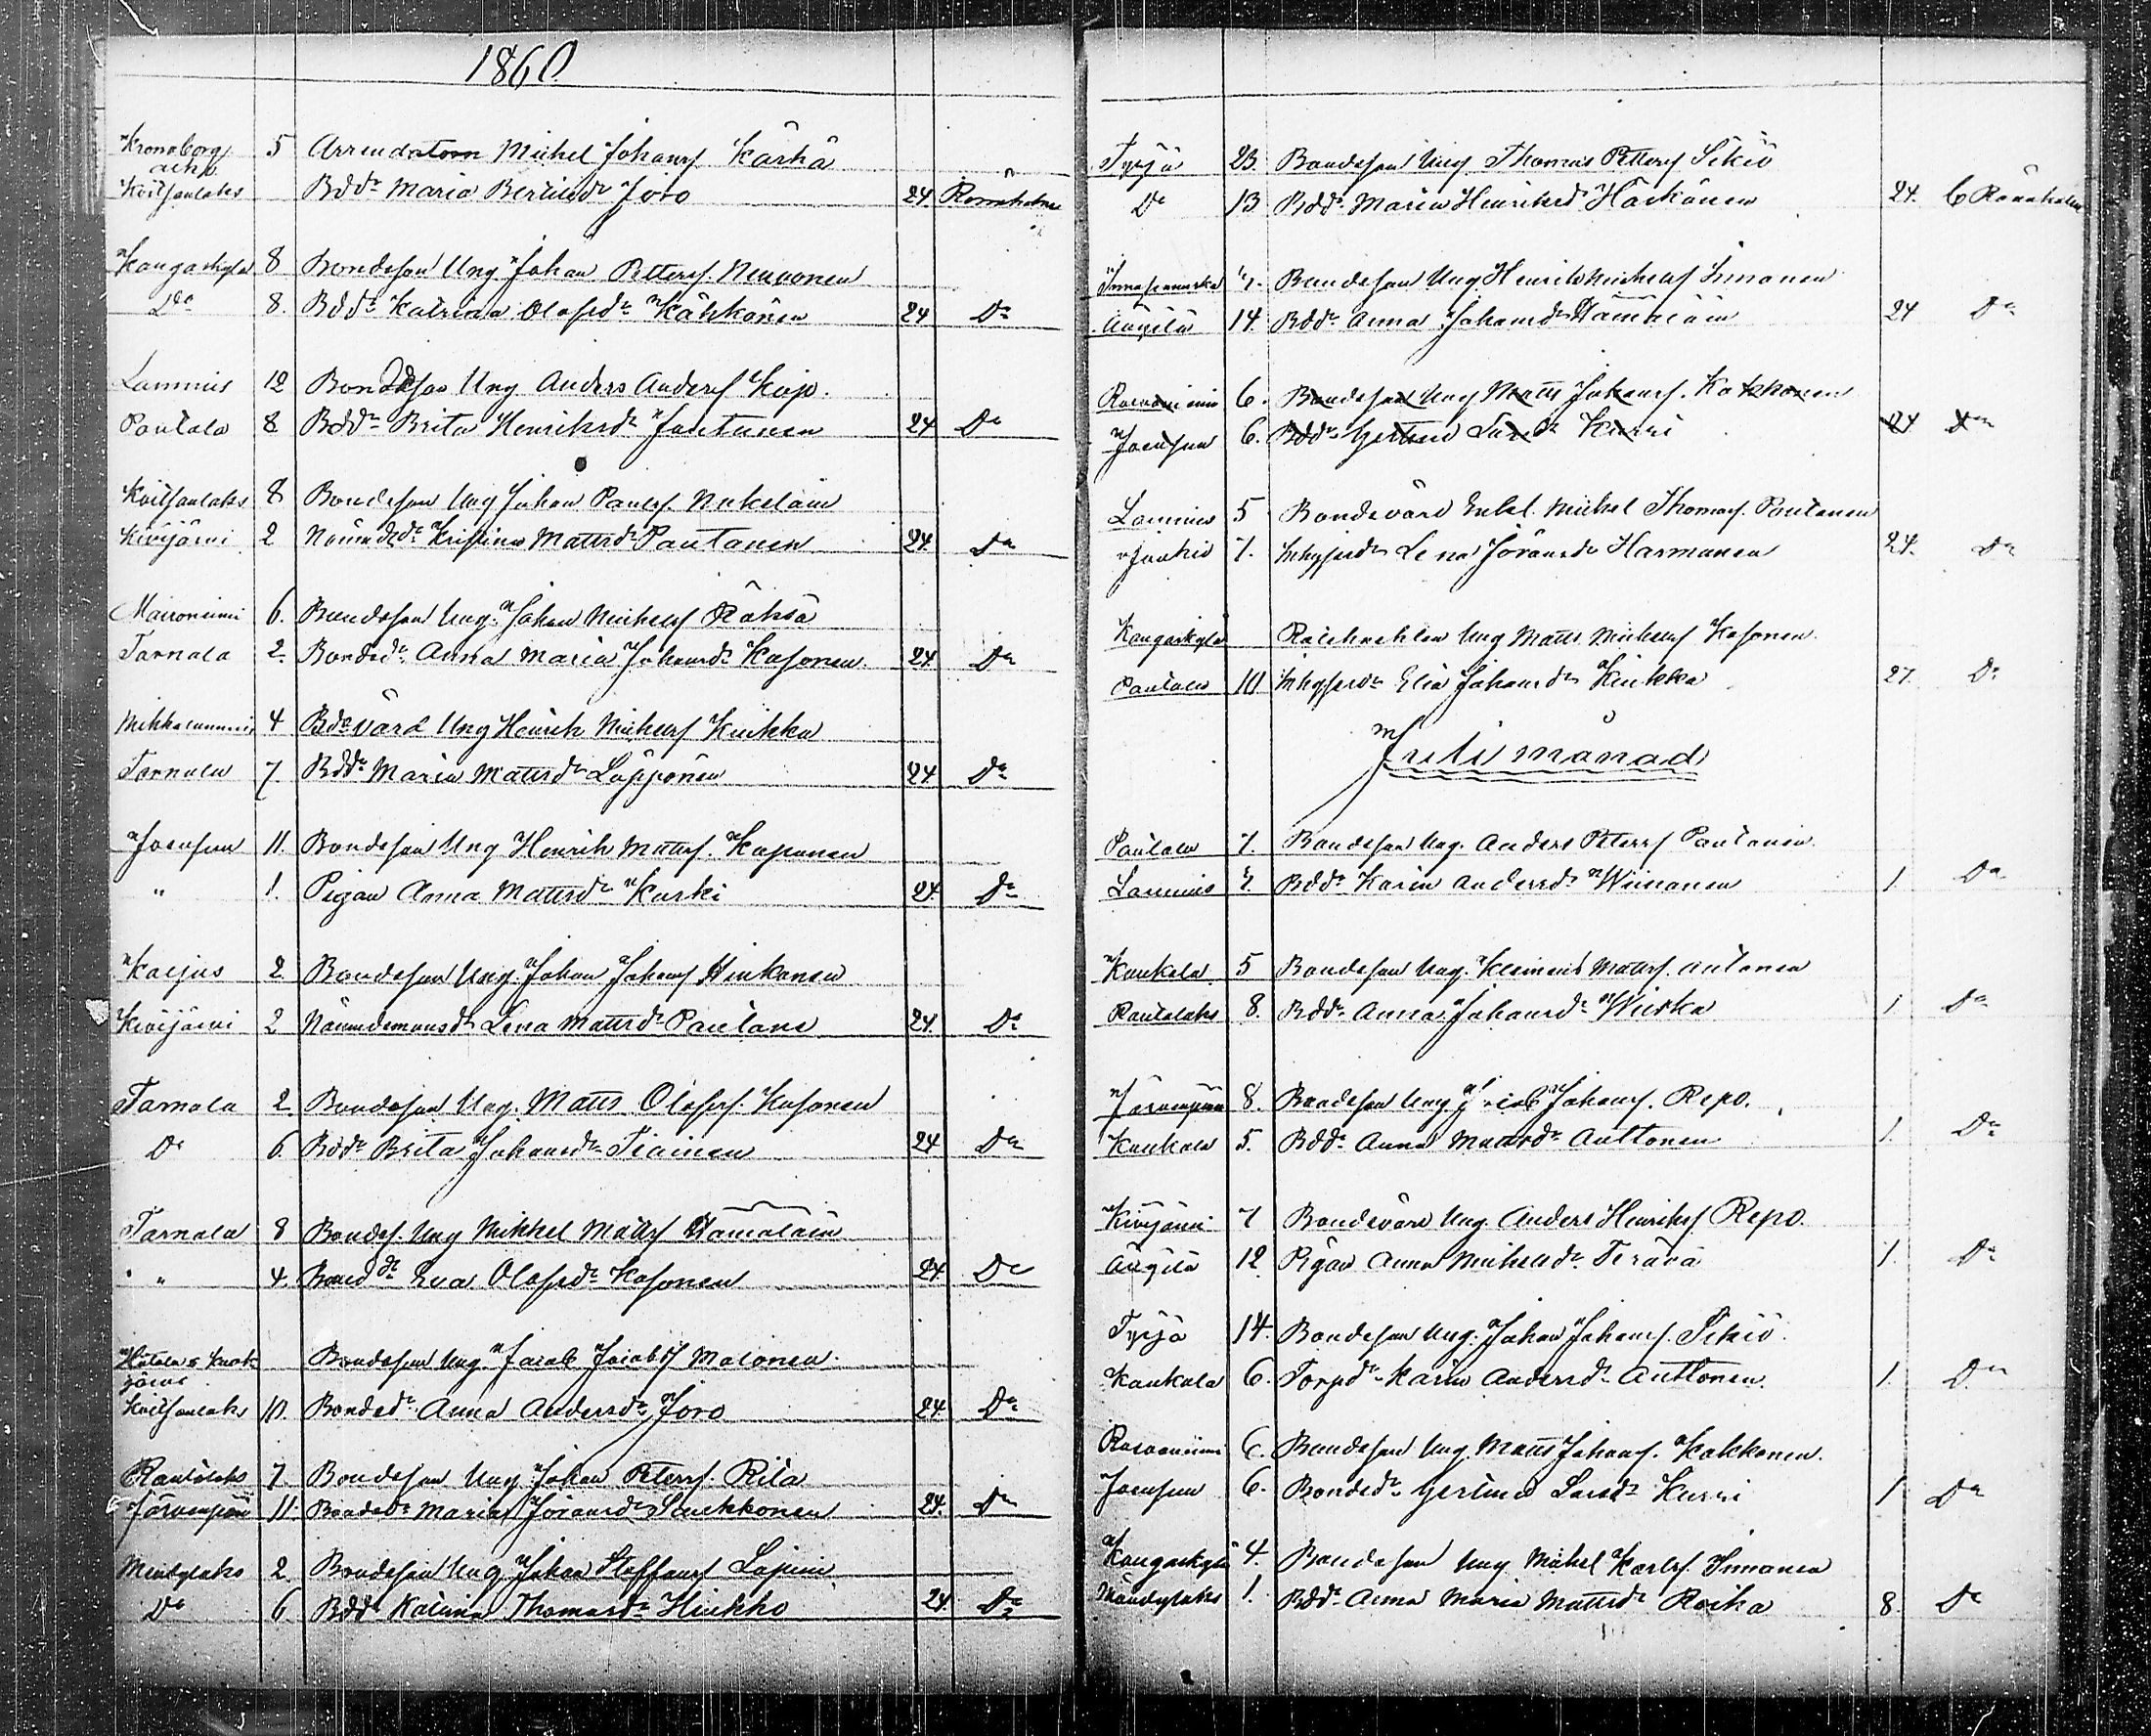 1860
Kronoborg 5 Arrendatorn Michel Johanss Kärhä
Koitsanlaks Bdd:r Maria Bertilsd:r Joro 24 Rönnholm
Kangaskylä 8 Bondeson Ung Johan Petterss. Neuvonen
D:o 8. Bdd:r Katrina Olofsd:r Kähkönen 24 D:o
Lammins 12 Bondeson Ung Anders Anderss
Pontala 8 Bdd:r Brita Henriksd:r Jantunen 24 D:o
Koitsanlaks 8 Bondeson Ung Johan Paulss.
Kivijärvi 2 Nämnd:d:r Kristina Mattsd:r Pautanen 24 D:o
6. Bondeson Ung. Johan Michelss Rähsä
Tarnala 2. Bonded:r Anna Maria Johansd:r Kosonen 24 D:o
4 Bdevärd Ung Henrik Michelss Kuikka
Tarnala 7. Bdd:r Maria Mattsd:r Lapponen 24 D:o
Joensuu 11. Bondeson Ung Henrik Mattss. Kaponen
" 1. Pigan Anna Mattsd:r Kurki 24 D:o
Kaijus 2 Bondeson Ung. Johan Johanss Hinkanen
Kivijärvi 2 Nämndemansd:r Lena Mattsd:r Pautane 24 D:o
Tarnala 2 Bondeson Ung. Matts Olofss. Kosonen
D:o 6 Bdd:r Brita Johansd:r Tiainen 24 D:o
Tarnala 8 Bondes. Ung Mikkel Mattss Hämäläin
" 4. Bond d:r Eva Olofsd:r Kosonen 24 D:o
Bondeson Ung. Jacob Jacobss Malonen
Koitsanlaks 10. Bonded:r Anna Andersd:r Joro 24 D:o
Rautalaks 7. Bondeson Ung Johan Peterss. Rita
Järvenpää 11. Bonded:r Maria Göransd:r Laukkonen 24. D:o
Mentylaks 2. Bondeson Ung Johan Staffanss
D:o 6 Bdd:r Katrina Thomasd:r Hinkko 24. D:o
Tyrjä 23. Bondeson Ung Thomas Petterss Sikiö
D:o 13 Bdd:r Maria Henriksd:r Härkönen 24. C Rönnholm
7. Bondeson Ung Henrik Michelss Immonen
Ängilä 14. Bdd:r Anna Johansd:r Hämäläin 24 D:o
Rasvaniemi 6. Bondeson Ung Matts Johanss. Kakkonen
Joensuu 6. Bdd:r Gertrud Larsd:r Kurri 24 D:o
Lammins 5 Bondevärd Enkl. Michel Thomass. Pautanen
7. Inhysesd:r Lena Göransd:r Harmanen 24. D:o
Kangaskylä Ung Matts Michelss Kosonen
Pautala 10 Inhysesd:r Elin Johansd:r Kuikka 27. D:o
Juli månad
Pautala 7. Bondeson Ung. Anders Peterss Pautanen
Lammins 7. Bdd:r Karin Andersd:r Wiinanen 1. D:o
Kankala 5 Bondeson Ung. Klemens Mattss. Antonen
Rautalaks 8. Bdd:r Anna Johansd:r Wirka 1 D:o
Järvenpää 8. Bondeson Ung Jacob Johanss. Repo.
Kankala 5. Bdd:r Anna Mattsd:r Anttonen 1. D:o
Kivijärvi 7 Bondevärd Ung. Anders Henrikss Repo.
Ängilä 12 Pigan Anna Michelsd:r Terävä 1. D:o
Tyrjä 14. Bondeson Ung. Johan Johanss. Sikiö.
Kankala 6. Torpd:r Karin Andersd:r Anttonen. 1. D:o
Rasvaniemi 6. Bondeson Ung. Matts Johanss. Kakkonen.
Joensuu 6. Bonded:r Gertrud Larsd:r Kurri 1 D:o
Kangaskylä 4. Bondeson Ung Mikel Karlss. Immonen
Mändylaks 1. Bdd:r Anna Maria Mattsd:r Roika 8. D:o